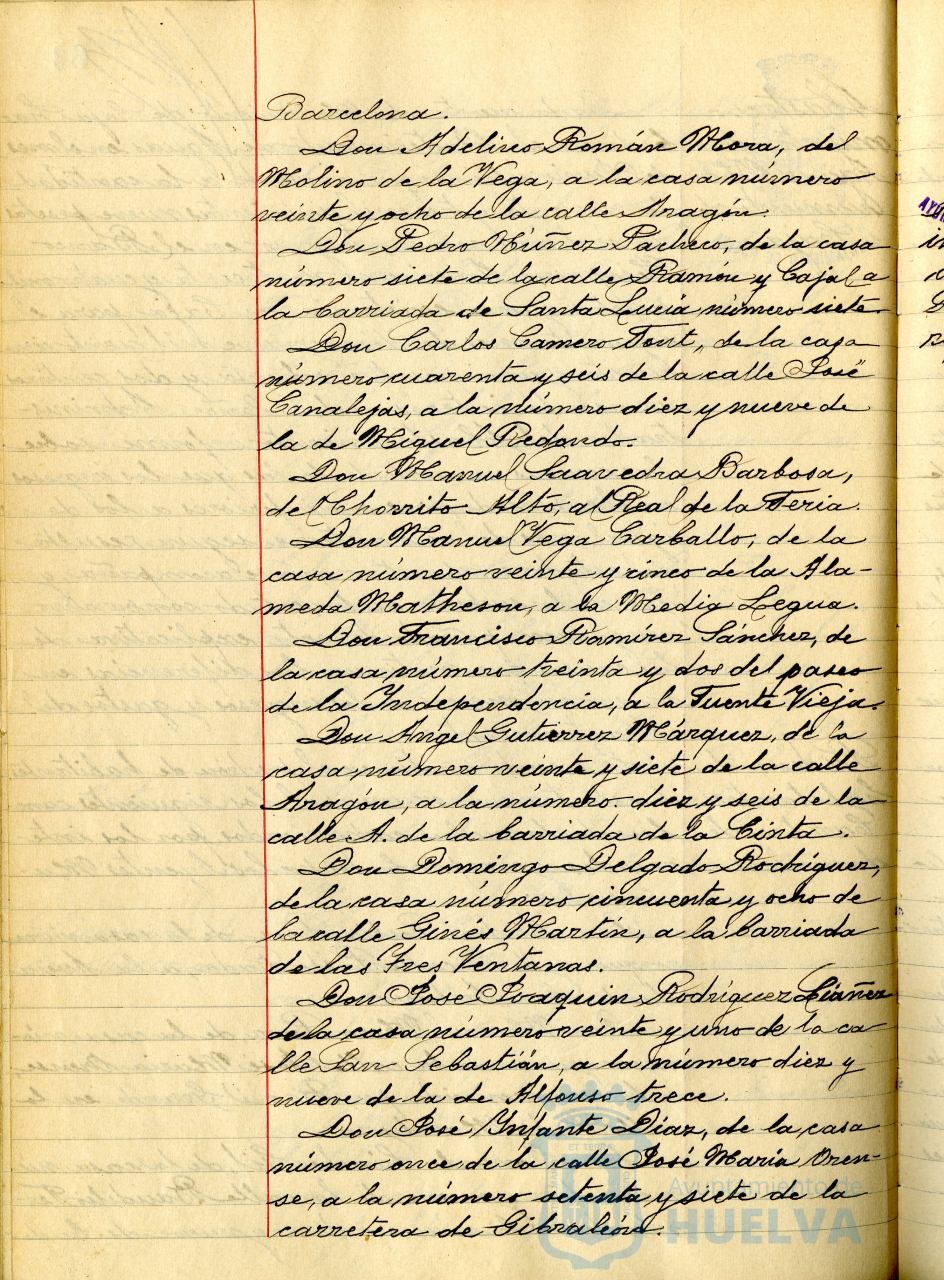 Barcelona.
Don Adelino Román Mora, del
Molino de la Vega, a la casa número
veinte y ocho de la calle Aragón.
Don Pedro Núñez Pacheco, de la casa
número siete de la calle Ramón y Cajal a
la barriada de Santa Lucía número siete.
Don Carlos Camero Font, de la casa
número cuarenta y seis de la calle José
Canalejas, a la número diez y nueve de
la de Miguel Redondo.
Don Manuel Saavedra Barbosa,
del Chorrito Alto, al Real de la Feria.
Don Manuel Vega Carballo, de la
casa número veinte y cinco de la Ala-
meda Matheson, a la Media Legua.
Don Francisco Ramírez Sánchez, de
la casa número treinta y dos del paseo
de la Yndependencia, a la Fuente Vieja.
Don Angel Gutierrez Márquez, de la
casa número veinte y siete de la calle
Aragón, a la número diez y seis de la
calle A. de la barriada de la Cinta.
Don Domingo Delgado Rodríguez,
de la casa número cincuenta y ocho de
la calle Ginés Martín, a la barriada
de las Tres Ventanas.
Don José Joaquin Rodríguez Liáñez
de la casa número veinte y uno de la ca
lle San Sebastián, a la número diez y
nueve de la de Alfonso trece.
Don José Ynfante Díaz, de la casa
número once de la calle José María Oren-
se, a la número setenta y siete de la
carretera de Gibraleón.
Ayuntamiento de
HUELVA